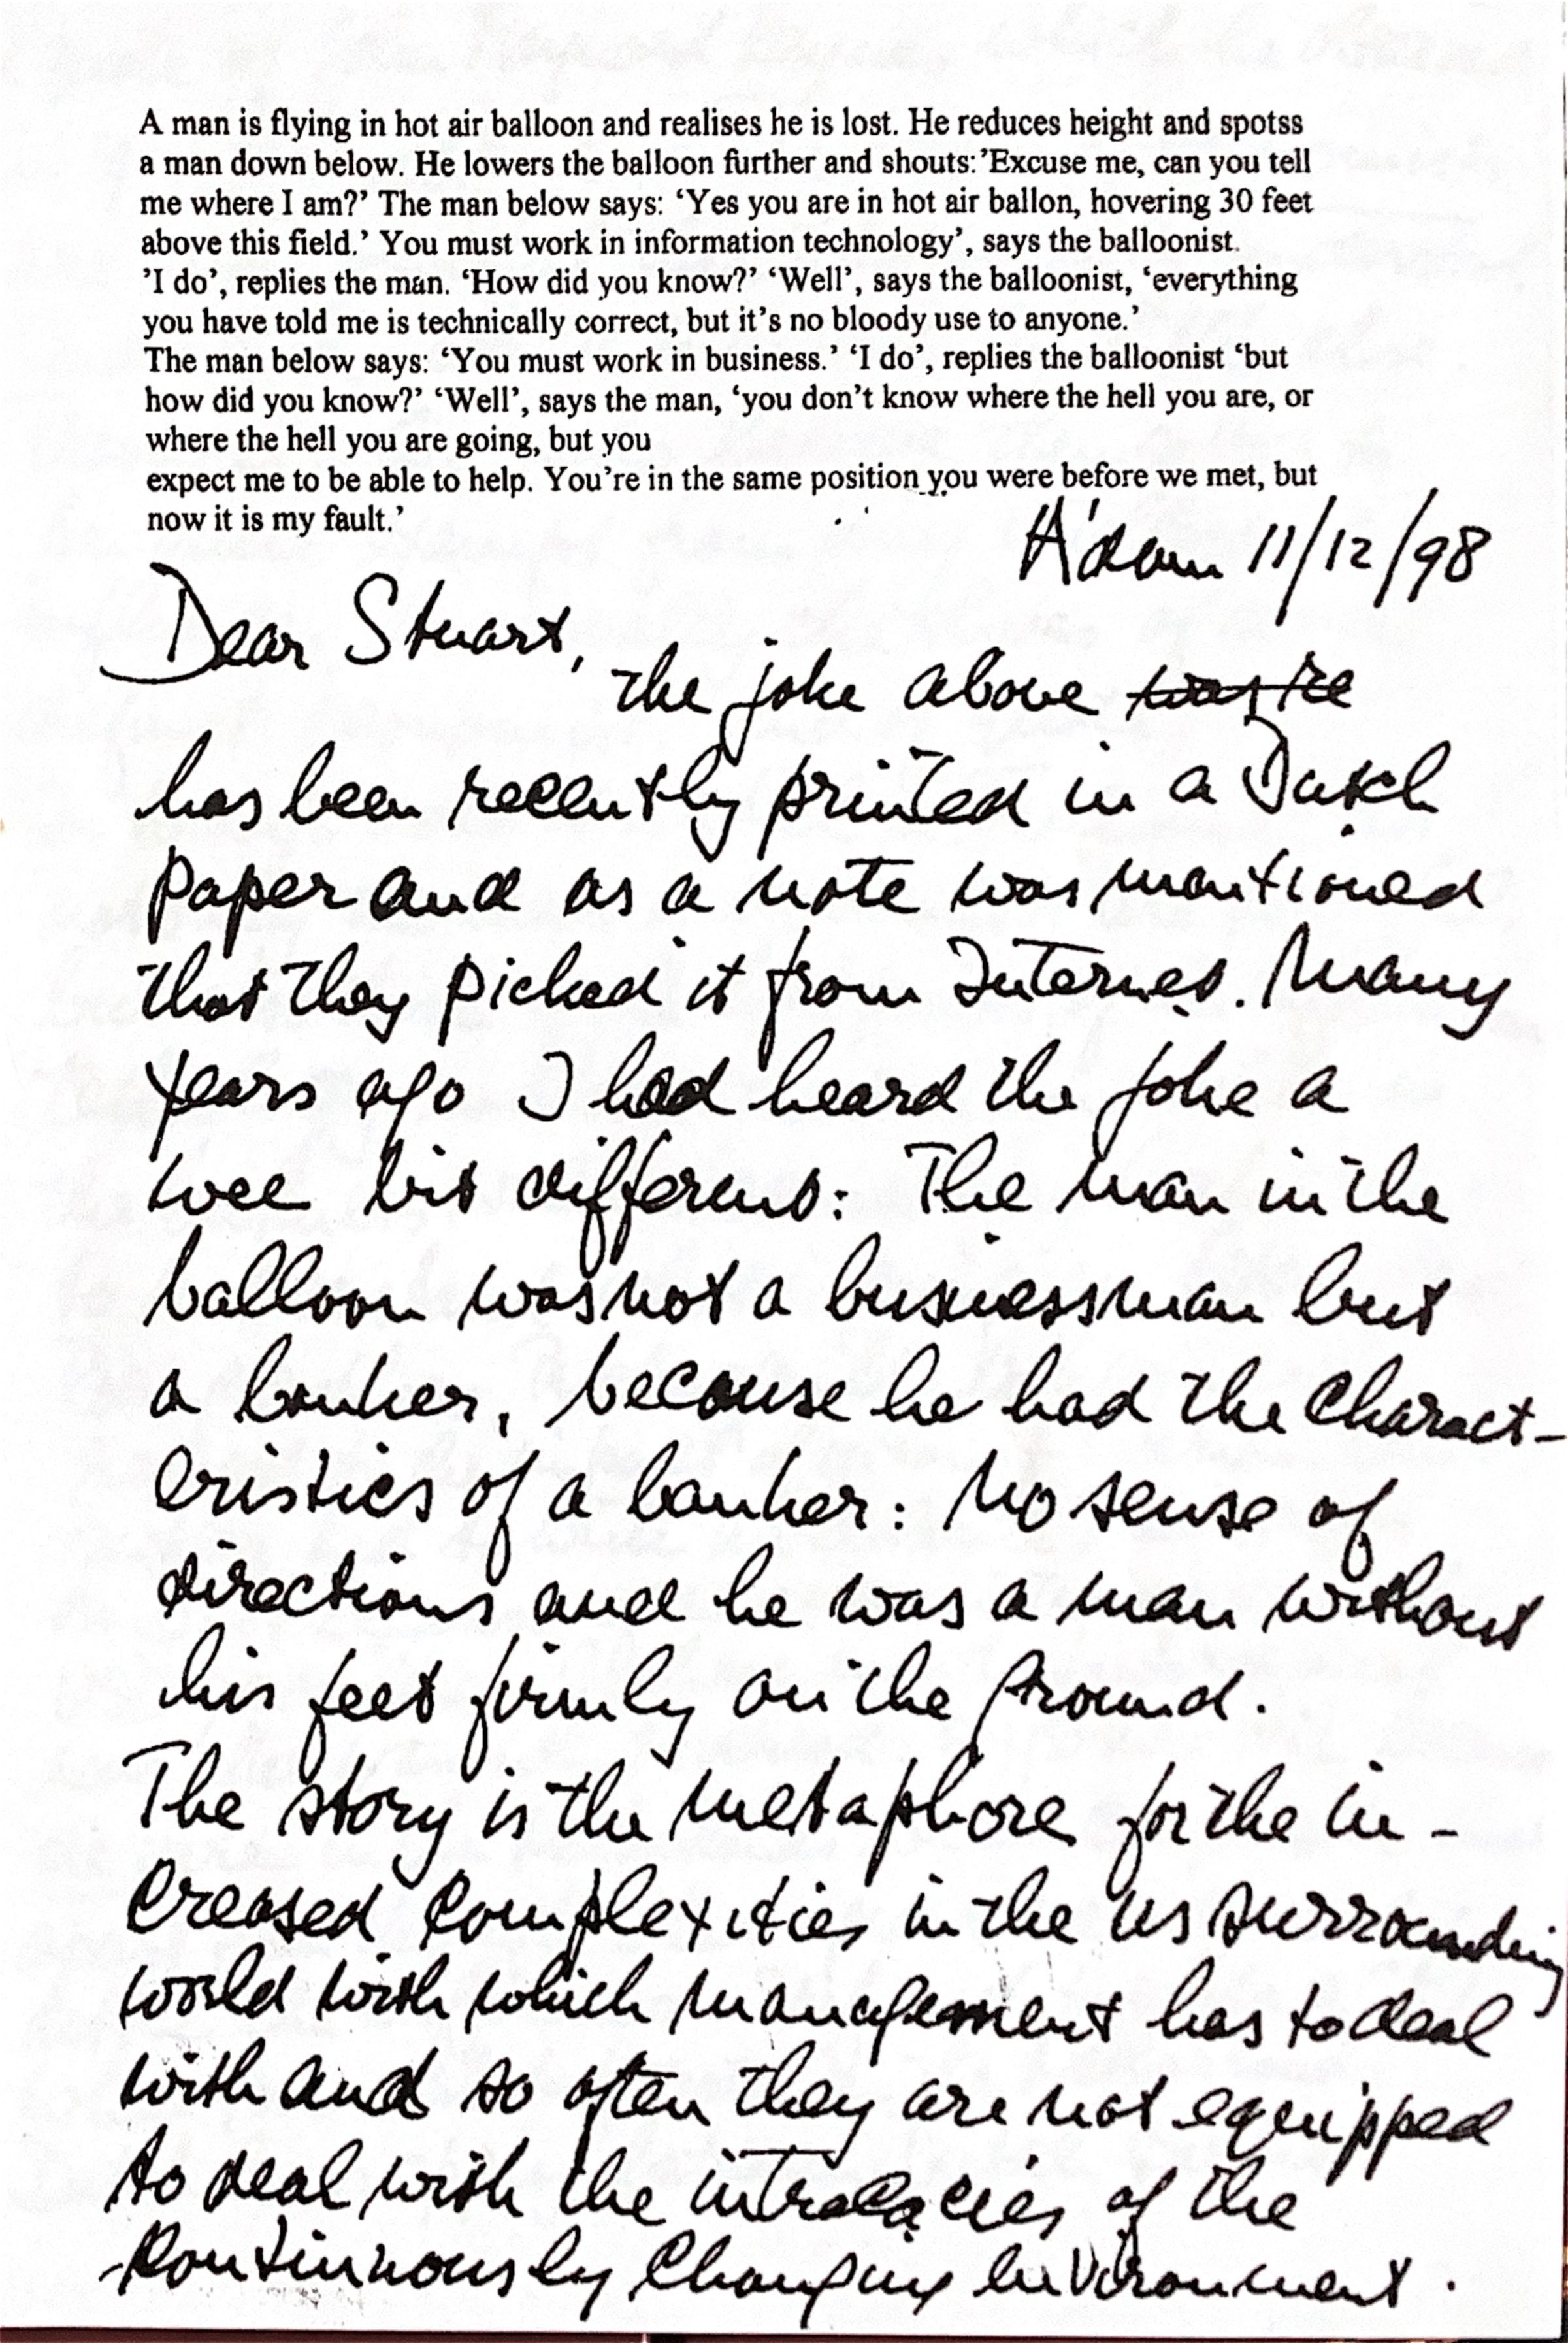 A man is flying in hot air balloon and realises he is lost. He reduces height and spotss
a man down below. He lowers the balloon further and shouts:’Excuse me, can you tell
me where I am?’ The man below says: ‘Yes you are in hot air ballon, hovering 30 feet
above this field.’ You must work in information technology’, says the balloonist.
’I do’, replies the man. ‘How did you know?’ ‘Well’, says the balloonist, ‘everything
you have told me is technically correct, but it’s no bloody use to anyone.’
The man below says: ‘You must work in business.’ ‘I do’, replies the balloonist ‘but
how did you know?’ ‘Well’, says the man, ‘you don’t know where the hell you are, or
where the hell you are going, but you
expect me to be able to help. You’re in the same position you were before we met, but
now it is my fault.’
A'dam 11/12/98
Dear Stuart,
the joke above was re
has been recently printed in a Dutch
paper and as a note was mantioned
that they picked it from Internet. Many
years ago I had heard the joke a
wee bit different: The man in the
balloon was not a businessman but
a banker, because he had the charact-
eristics of a banker: no sense of
directions and he was a man without
his feet firmly on the ground.
The story is the metaphore for the in-
creased complexities in the us surrounding
world with which management has to deal
with and so often they are not equipped
to deal with the intracacies of the
continuously changing environment.